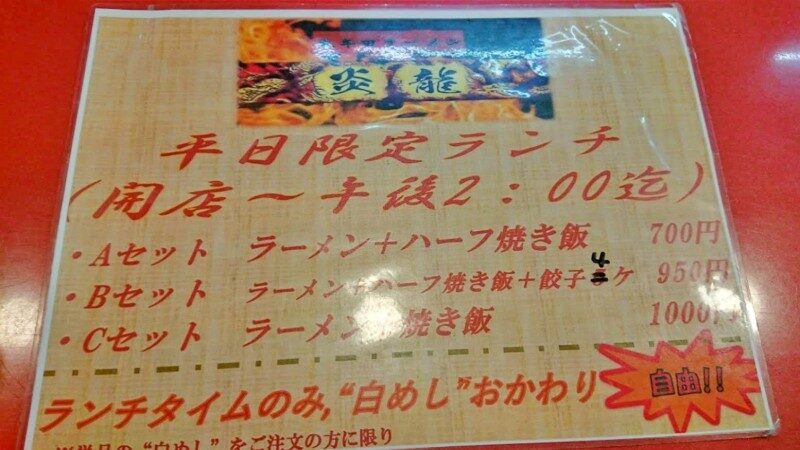 炎龍
平日限定ランチ
(開店～午後2：00迄)
・Aセット ラーメン＋ハーフ焼き飯 700円
・Bセット ラーメン＋ハーフ焼き飯＋餃子4ケ 950円
・Cセット ラーメン＋焼き飯 1000円
ランチタイムのみ,“白めし”おかわり 自由!!
“白めし”をご注文の方に限り